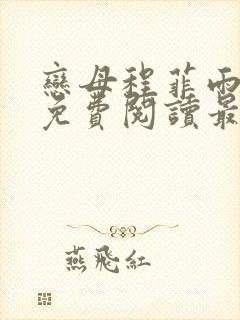 戀母程菲雨
免費閱讀最
燕飛紅